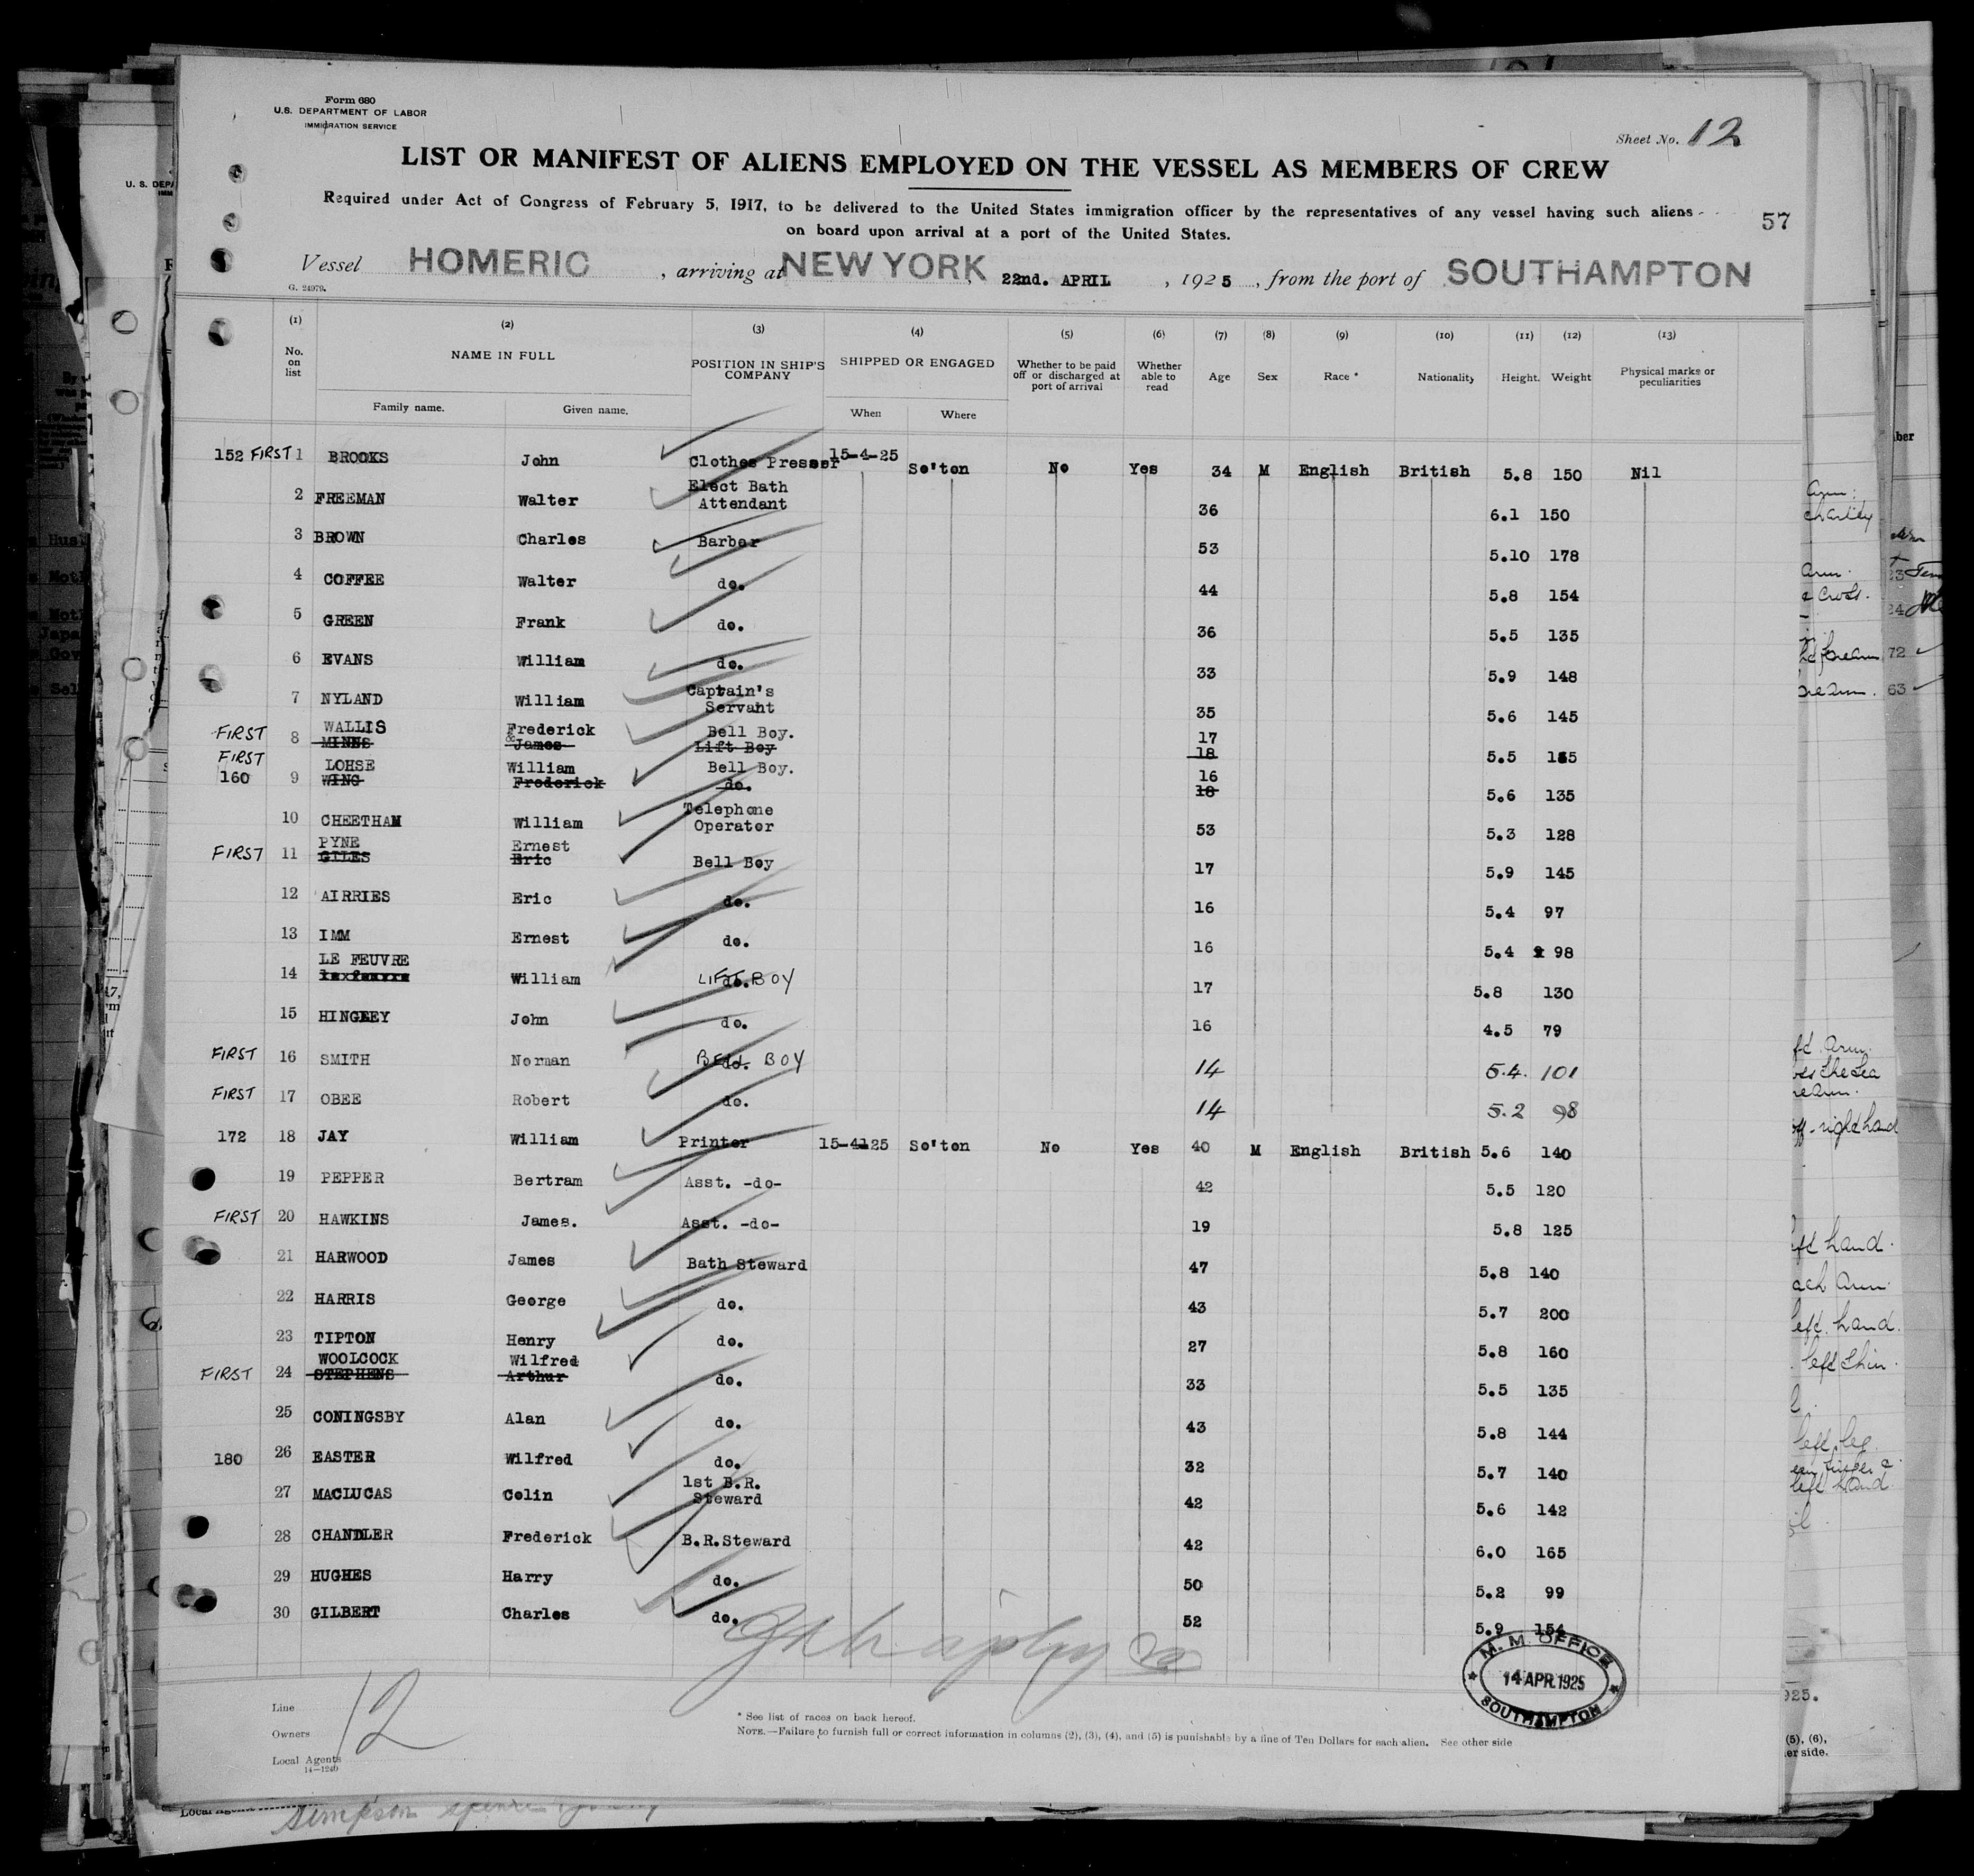 Form 680
U.S. DEPARTMENT OF LABOR
IMMIGRATION SERVICE
Sheet No. 12
LIST OR MANIFEST OF ALIENS EMPLOYED ON THE VESSEL AS MEMBERS OF CREW
Required under Act of Congress of February 5, 1917, to be delivered to the United States immigration officer by the representatives of any vessel having such aliens
on board upon arrival at a port of the United States.
57
Vessel HOMERIC , arriving at NEW YORK 22nd. APRIL , 1925 , from the port of SOUTHAMPTON
G. 24979.
(1) (2) (3) (4) (5) (6) (7) (8) (9) (10) (11) (12) (13)
No. on list NAME IN FULL POSITION IN SHIP'S COMPANY SHIPPED OR ENGAGED Whether to be paid off or discharged at port of arrival Whether able to read Age Sex Race * Nationality Height. Weight Physical marks or peculiarities
Family name. Given name. When Where
152 FIRST 1 BROOKS John Clothes Presser 15-4-25 So'ton No Yes 34 M English British 5.8 150 Nil
2 FREEMAN Walter Elect Bath Attendant 36 6.1 150
3 BROWN Charles Barber 53 5.10 178
4 COFFEE Walter do. 44 5.8 154
5 GREEN Frank do. 36 5.5 135
6 EVANS William do. 33 5.9 148
7 NYLAND William Captain's Servant 35 5.6 145
WALLIS Frederick Bell Boy. 17
FIRST 8 MINNS & James Lift Boy 18 5.5
FIRST LOHSE William Bell Boy. 16
160 9 WING Frederick do. 18 5.6 135
10 CHEETHAM William Telephone Operator 53 5.3 128
PYNE Ernest
FIRST 11 GILES Eric Bell Boy 17 5.9 145
12 AIRRIES Eric do. 16 5.4 97
13 IMM Ernest do. 16 5.4 98
LE FEUVRE
14 William LIFT BOY 17 5.8 130
15 HINGLEY John do. 16 4.5 79
FIRST 16 SMITH Norman BELL BOY 14 5.4. 101
FIRST 17 OBEE Robert do. 14 5.2 98
172 18 JAY William Printer 15-4-25 So'ton No Yes 40 M English British 5.6 140
19 PEPPER Bertram Asst. -do- 42 5.5 120
FIRST 20 HAWKINS James. Asst. -do- 19 5.8 125
21 HARWOOD James Bath Steward 47 5.8 140
22 HARRIS George do. 43 5.7 200
23 TIPTON Henry do. 27 5.8 160
WOOLCOCK Wilfred
FIRST 24 STEPHENS Arthur do. 33 5.5 135
25 CONINGSBY Alan do. 43 5.8 144
180 26 EASTER Wilfred do. 32 5.7 140
27 MACLUCAS Colin 1st B.R. Steward 42 5.6 142
28 CHANDLER Frederick B.R.Steward 42 6.0 165
29 HUGHES Harry do. 50 5.2 99
30 GILBERT Charles do. 52 5.9 154
M. M. OFFICE
14 APR.1925
SOUTHAMPTON
12
Line
Owners
Local Agents
14-1240
* See list of races on back hereof.
NOTE.—Failure to furnish full or correct information in columns (2), (3), (4), and (5) is punishable by a fine of Ten Dollars for each alien. See other side